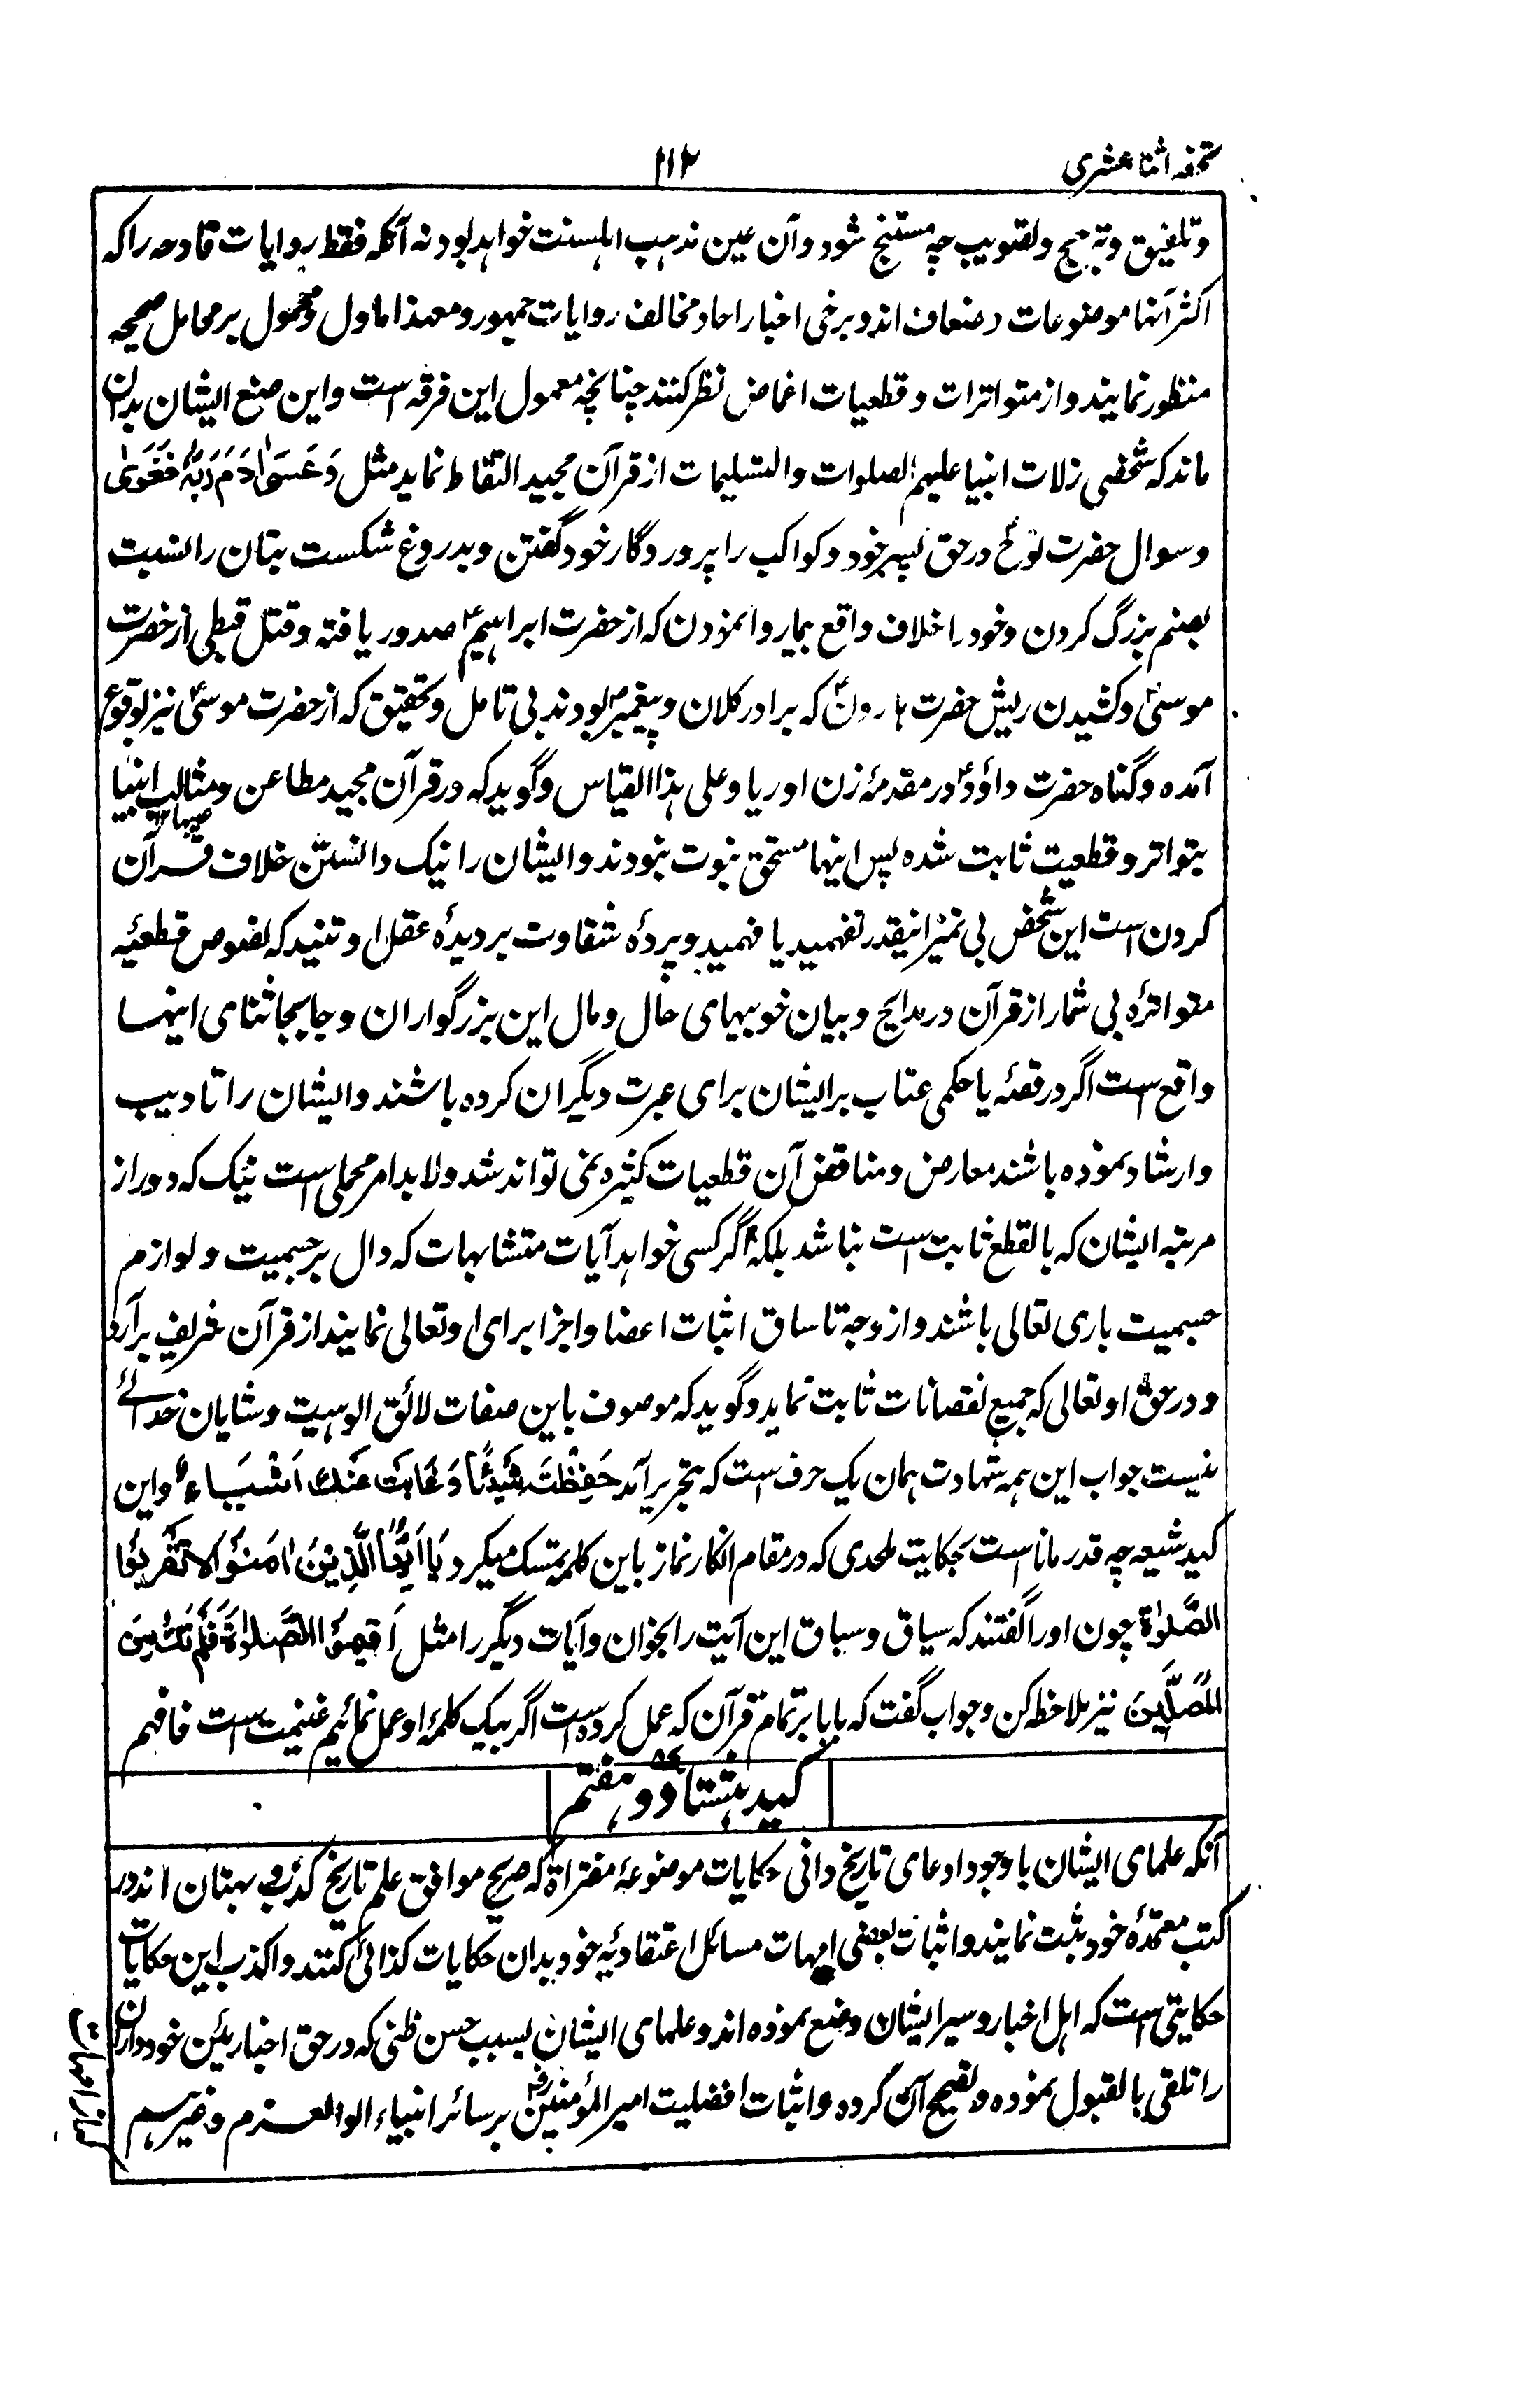 تحفه اثنا عشری
۱۱۲
و تلفیق و ترجیح و تصویب چه مستنتج شود و آن عین مذهب اهلسنت خواهد بود نه آنکه فقط روایات قادحه را که
اکثر آنها موضوعات و ضعاف اند و برخی اخبار احاد مخالف روایات جمهور و معهذا ماول و محمول بر محامل صحیحه
منظور نمایند و از متواترات و قطعیات اغماض نظر کنند چنانچه معمول این فرقه است و این صنع ایشان بدان
ماند که شخصی زلات انبیا علیهم الصلوات والتسلیمات از قرآن مجید التقاط نماید مثل وَعَصَىٰ اٰدَمَ رَبَّهٗ فَغَوَىٰ
و سوال حضرت نوحؑ در حق پسر خود و کواکب را پروردگار خود گفتن و بدروغ شکست بتان را نسبت
بصنم بزرگ کردن و خود را خلاف واقع بیمار وانمودن که از حضرت ابراهیمؑ صدور یافته و قتل قبطی از حضرت
موسیؑ و کشیدن ریش حضرت هارونؑ که برادر کلان و پیغمبر بودند بی تامل و تحقیق که از حضرت موسیؑ نیز بوقوع
آمده و گناه حضرت داؤدؑ در مقدمهٔ زن اوریا و علی هذا القیاس و گوید که در قرآن مجید مطاعن و مثالب انبیا
عیبها ۱۲
بتواتر و قطعیت ثابت شده پس اینها مستحق نبوت نبودند و ایشان را نیک دانستن خلاف قرآن
کردن است این شخص بی تمیز اینقدر نفهمید یا فهمید و پردهٔ شقاوت بر دیدهٔ عقل او تنید که نصوص قطعیهٔ
متواترهٔ بی شمار از قرآن در مدایح و بیان خوبیهای حال و مال این بزرگواران و جا بجا ثنای اینها
واقع است اگر در قصهٔ یا حکمی عتاب بر ایشان برای عبرت دیگران کرده باشند و ایشان را تادیب
و ارشاد نموده باشند معارض و مناقض آن قطعیات کثیره نمی تواند شد و لابد امر محملی است نیک که دور از
مرتبه ایشان که بالقطع ثابت است نباشد بلکه اگر کسی خواهد آیات متشابهات که دال بر جسمیت و لوازم
جسمیت باری تعالی باشند و از وجه تا ساق اثبات اعضا و اجزا برای او تعالی نمایند از قرآن شریف برآرد
و در حق او تعالی که جمیع نقصانات ثابت نماید و گوید که موصوف باین صفات لائق الوهیت و شایان خدائے
نیست جواب این همه شهادت همان یک حرف است که بتحریر آمد حَفِظْتَ شَیْئًا وَغَابَتْ عَنْكَ اَشْیَاء و این
کید شیعه چه قدر ماناست بحکایت ملحدی که در مقام انکار نماز باین کلمه تمسک میکرد یَا اَیُّهَا الَّذِیْنَ اٰمَنُوْا لَا تَقْرَبُوا
الصَّلٰوةَ چون او را گفتند که سیاق و سباق این آیت را بخوان و آیات دیگر را مثل اَقِیمُوا الصَّلٰوةَ وَلَمْ نَكُ مِنَ
الْمُصَلِّینَ نیز ملاحظه کن و جواب گفت که بابا بر تمام قرآن که عمل کرده است اگر بیک کلمهٔ او عمل نمائیم غنیمت است فافهم
کید هشتاد و هفتم
آنکه علمای ایشان باوجود ادعای تاریخ دانی حکایات موضوعهٔ مفتراة که صریح موافق علم تاریخ کذب و بهتان اند در
کتب معتمدهٔ خود ثبت نمایند و اثبات بعضی امهات مسائل اعتقادیه خود بدان حکایات کذائی کنند و اکذب این حکایات
حکایتی است که اهل اخبار و سیر ایشان وضع نموده اند و علمای ایشان بسبب حسن ظنی که در حق اخباریئن خود دارند آن
را تلقی بالقبول نموده و تصحیح آن کرده و اثبات افضلیت امیر المؤمنین بر سائر انبیاء الوالعزم و غیرهم